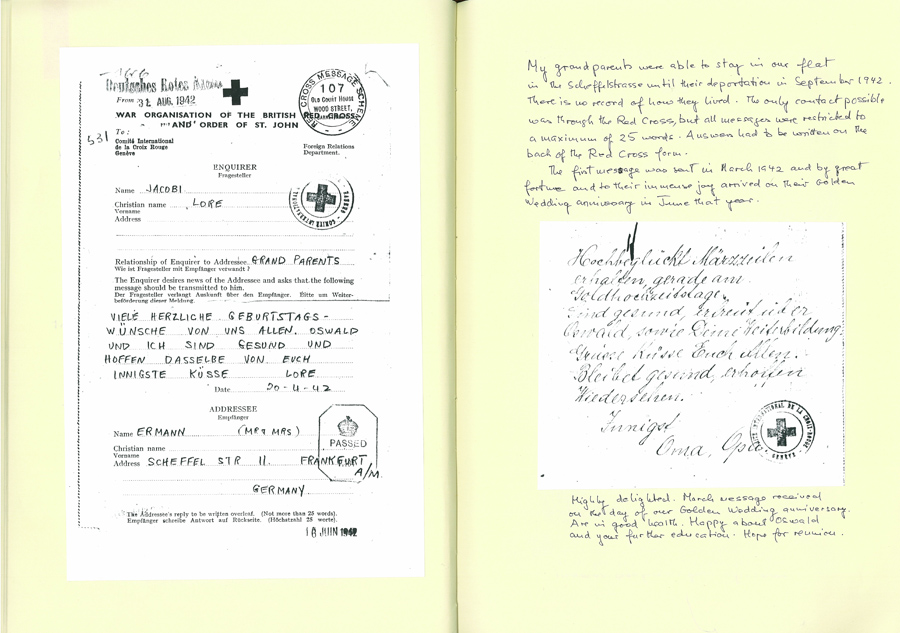 Deutsches Rotes Kreuz
From 31. AUG. 1942
WAR ORGANISATION OF THE BRITISH RED CROSS
AND ORDER OF ST. JOHN
531
To:
Comité International
de la Croix Rouge
Genève
RED CROSS MESSAGE SCHEME
107
OLD COURT HOUSE
WOOD STREET,
Foreign Relations
Department.
ENQUIRER
Fragesteller
Name JACOBI
Christian name LORE
Vorname
Address
Relationship of Enquirer to Addressee GRAND PARENTS
Wie ist Fragesteller mit Empfänger verwandt ?
The Enquirer desires news of the Addressee and asks that the following
message should be transmitted to him.
Der Fragesteller verlangt Auskunft über den Empfänger. Bitte um Weiter-
beförderung dieser Meldung.
VIELE HERZLICHE GEBURTSTAGS-
WÜNSCHE VON UNS ALLEN. OSWALD
UND ICH SIND GESUND UND
HOFFEN DASSELBE VON EUCH
INNIGSTE KÜSSE LORE.
Date 20-4-42
ADDRESSEE
Empfänger
Name ERMANN (MR & MRS)
Christian name
Vorname
Address SCHEFFEL STR 11. FRANKFURT
A/M.
GERMANY
PASSED
The Addressee's reply to be written overleaf. (Not more than 25 words).
Empfänger schreibe Antwort auf Rückseite. (Höchstzahl 25 worte).
18 JUIN 1942
My grandparents were able to stay in our flat
in the Scheffelstrasse until their deportation in September 1942.
There is no record of how they lived. The only contact possible
was through the Red Cross, but all messages were restricted to
a maximum of 25 words. Answer had to be written on the
back of the Red Cross form.
The first message was sent in March 1942 and by great
fortune and to their immense joy arrived on their Golden
Wedding anniversary in June that year.
Hochbeglückt Märzzeilen
erhalten, gerade am
Goldhochzeitstage.
Sind gesund, erfreut über
Oswald, sowie Deine Weiterbildung.
Grüsse Küsse Euch Allen.
Bleibet gesund, erhoffen
Wiedersehen.
Innigst
Oma, Opa
COMITÉ INTERNATIONAL DE LA CROIX-ROUGE
GENÈVE
Highly delighted. March message received
on the day of our Golden Wedding anniversary.
Are in good health. Happy about Oswald
and your further education. Hope for reunion.